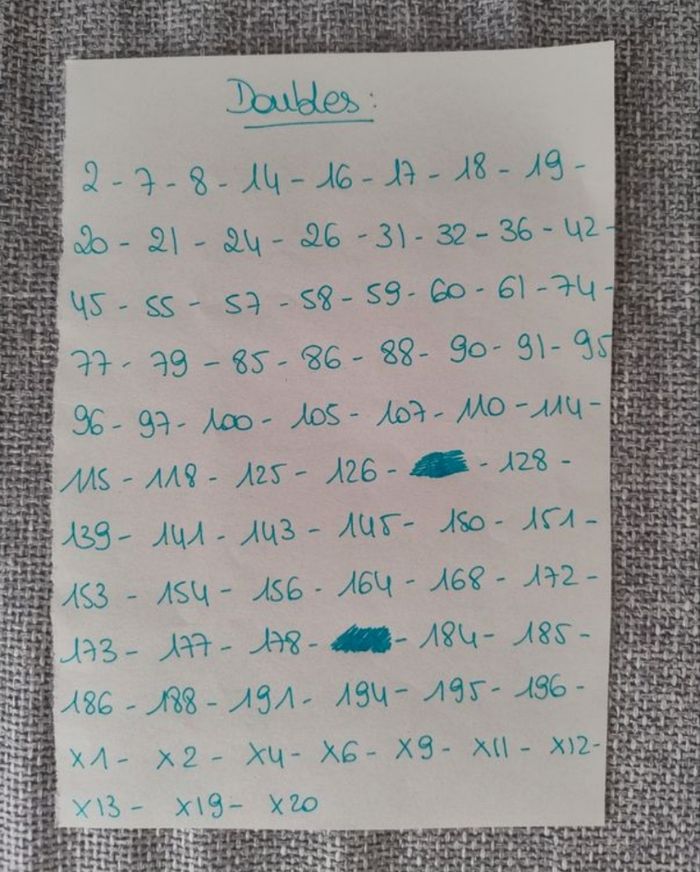 Doubles :
2 - 7 - 8 - 14 - 16 - 17 - 18 - 19 -
20 - 21 - 24 - 26 - 31 - 32 - 36 - 42 -
45 - 55 - 57 - 58 - 59 - 60 - 61 - 74 -
77 - 79 - 85 - 86 - 88 - 90 - 91 - 95
96 - 97 - 100 - 105 - 107 - 110 - 114 -
115 - 118 - 125 - 126 - - 128 -
139 - 141 - 143 - 145 - 150 - 151 -
153 - 154 - 156 - 164 - 168 - 172 -
173 - 177 - 178 - - 184 - 185 -
186 - 188 - 191 - 194 - 195 - 196 -
X1 - X2 - X4 - X6 - X9 - X11 - X12 -
X13 - X19 - X20